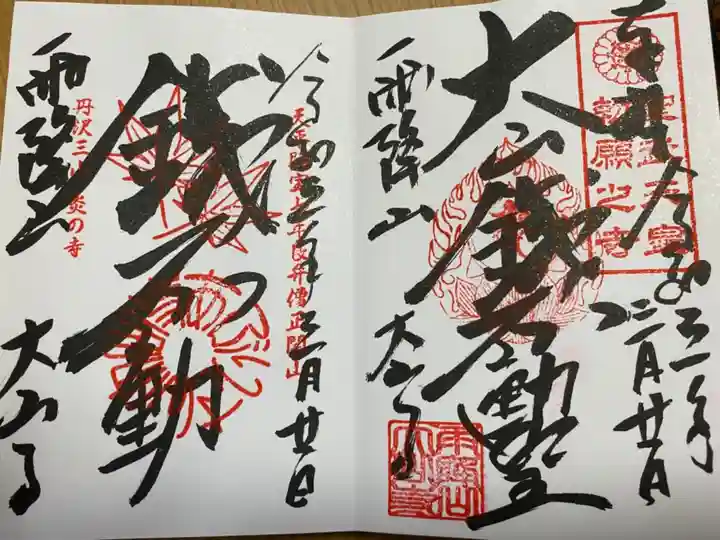 奉拝 令和三年
三月廿日
聖武天皇
勅願之寺
大山鐵不動尊
雨降山
大山寺
令和三年三月廿日
天平勝宝七年良弁僧正開山
鐵不動
丹沢三山炎の寺
雨降山
大山寺